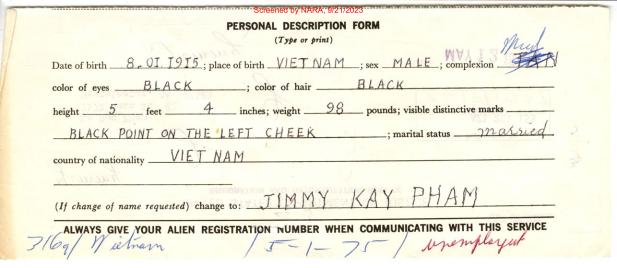 Screened by NARA, 9/21/2023
PERSONAL DESCRIPTION FORM
(Type or print)
Date of birth 8.01 1915; place of birth VIET NAM; sex MALE; complexion Med TAN
color of eyes BLACK; color of hair BLACK
height 5 feet 4 inches; weight 98 pounds; visible distinctive marks
BLACK POINT ON THE LEFT CHEEK; marital status married
country of nationality VIET NAM
(If change of name requested) change to: JIMMY KAY PHAM
ALWAYS GIVE YOUR ALIEN REGISTRATION NUMBER WHEN COMMUNICATING WITH THIS SERVICE
3169/ Vietnam / 5-1-75 / unemployed